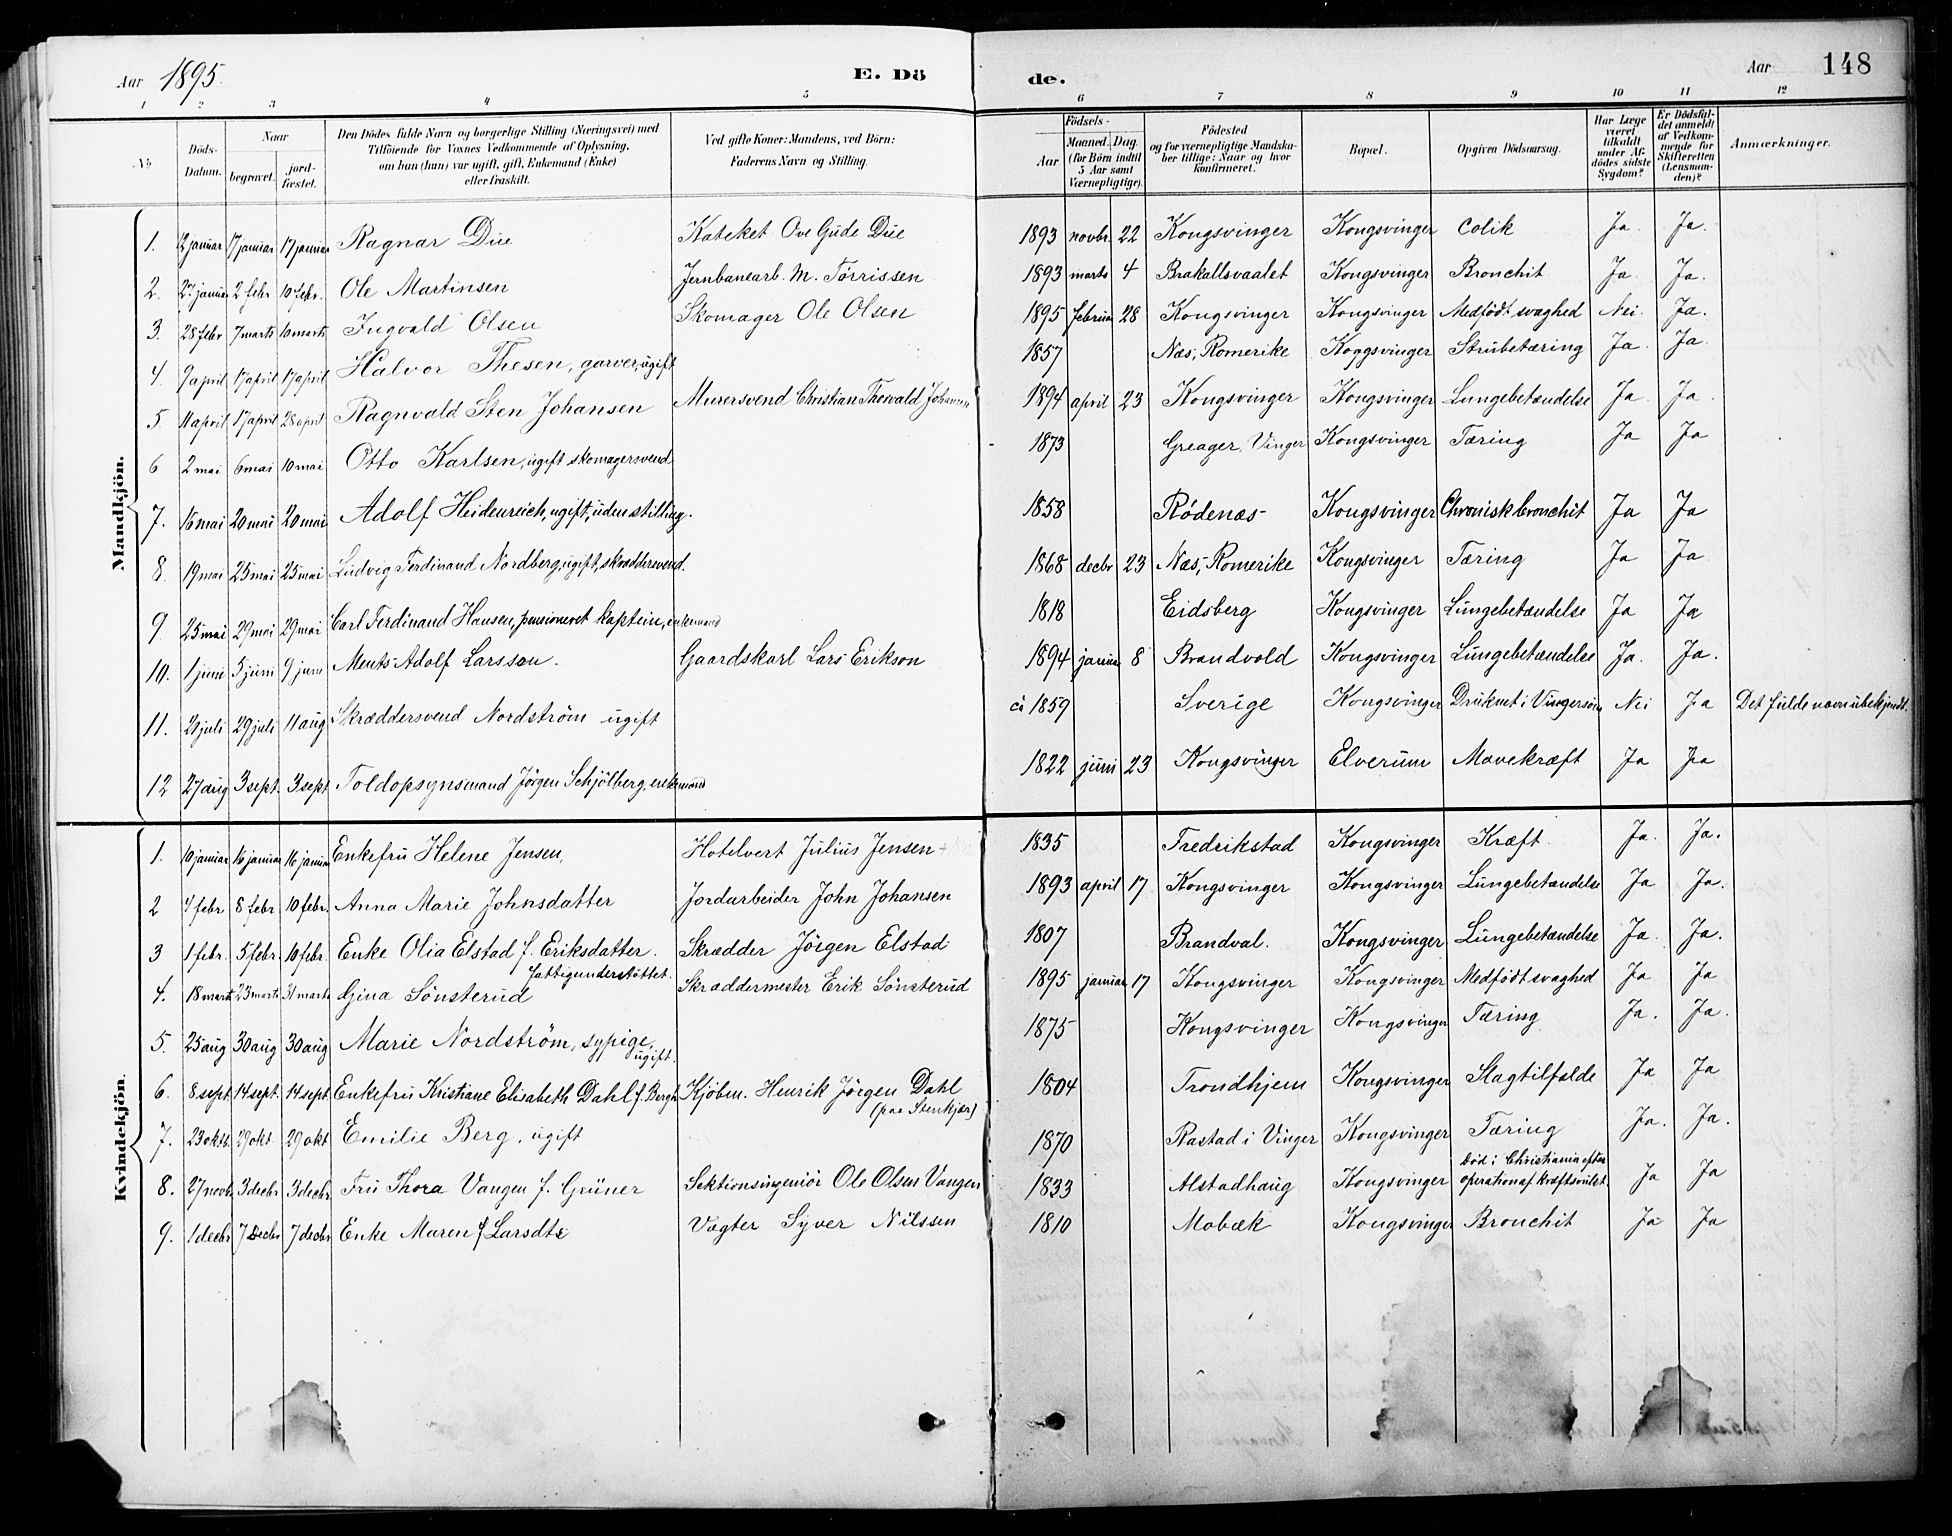 Aar 1895.
E. Dö
de.
Aar 148
1 2 3 4 5 6 7 8 9 10 11 12
No
Döds-Datum.
Naar
begravet.
jord-fæstet.
Den Dödes fulde Navn og borgerlige Stilling (Næringsvei) med
Tilföiende for Voxnes Vedkommende af Oplysning,
om han (hun) var ugift, gift, Enkemand (Enke)
eller fraskilt.
Ved gifte Koner: Mandens, ved Börn:
Faderens Navn og Stilling.
Födsels-
Aar
Maaned. Dag.
(for Börn indtil
5 Aar samt
Værnepligtige).
Födested
og for værnepligtige Mandska-
ber tillige: Naar og hvor
konfirmeret.
Bopæl.
Opgiven Dödsaarsag.
Har Læge
været
tilkaldt
under Af-
dödes sidste
Sygdom?
Er Dödsfal-
det anmeldt
af Vedkom-
mende for
Skifteretten
(Lensman-
den)?
Anmærkninger.
Mandkjön.
1. 12 januar 17 januar 17 januar Ragnar Due Kateket Ove Gude Due 1893 novbr. 22 Kongsvinger Kongsvinger Colik Ja. Ja.
2. 27 januar 2 febr 10 febr. Ole Martinsen Jernbanearb. M. Tørrissen 1893 marts 4 Brakallsvaalet Kongsvinger Bronchit Ja. Ja.
3. 28 febr 7 marts 10 marts Ingvald Olsen Skomager Ole Olsen 1895 februar 28 Kongsvinger Kongsvinger Medfödt svaghed Nei. Ja.
4. 9 april 17 april 17 april Halvor Thesen, garver, ugift 1857 Næs, Romerike Koggsvinger Strubetæring Ja. Ja.
5 11 april 17 april 28 april Ragnvald Sten Johansen Murersvend Christian Thorvald Johansen 1894 april 23 Kongsvinger Kongsvinger Lungebetændelse Ja. Ja.
6 2 mai 6 mai 10 mai Otto Karlsen, ugift skomagersvend 1873 Greager, Vinger Kongsvinger Tæring Ja Ja
7. 16 mai 20 mai 20 mai Adolf Heidenreich, ugift, uden stilling. 1858 Rødenæs Kongsvinger Chronisk bronchit Ja Ja
8. 19 mai 25 mai 25 mai Ludvig Ferdinand Nordberg, ugift, skræddersvend. 1868 decbr 23 Næs, Romerike Kongsvinger Tæring Ja Ja
9. 25 mai 29 mai 29 mai Carl Ferdinand Hansen, pensioneret kaptein, enkemand 1818 Eidsberg Kongsvinger Lungebetændelse Ja Ja
10. 1 juni 5 juni 9 juni Ments Adolf Larsson. Gaardskarl Lars Erikson 1894 januar 8 Brandvold Kongsvinger Lungebetændelse Ja. Ja.
11. 21 juli 29 juli 11 aug Skræddersvend Nordström ugift ci 1859 Sverige Kongsvinger Druknet i Vingersøen Nei Ja Det fulde navn ubekjendt.
12 27 aug 3 sept. 3 sept Toldopsynsmand Jörgen Schjölberg, enkemand 1822 juni 23 Kongsvinger Elverum Mavekræft Ja Ja
Kvindekjön.
1. 10 januar 16 januar 16 januar Enkefru Helene Jensen, Hotelvert Julius Jensen 1835 Fredrikstad Kongsvinger Kræft. Ja. Ja.
2 4 febr 8 febr 10 febr. Anna Marie Johnsdatter Jordarbeider John Johansen 1893 april 17. Kongsvinger Kongsvinger Lungebetændelse Ja Ja.
3 1 febr. 5 febr. 10 febr. Enke Olia Elstad f. Eriksdatter. Skrædder Jörgen Elstad 1807 Brandval. Kongsvinger Lungebetændelse Ja. Ja.
fattigunderstøttet.
4. 18 marts 23 marts 31 marts Gina Sönsterud Skræddermester Erik Sönsterud 1895 januar 17 Kongsvinger Kongsvinger Medfödt svaghed Ja Ja
5. 25 aug 30 aug 30 aug Marie Nordström, sypige, 1875 Kongsvinger Kongsvinger Tæring Ja. Ja.
ugift.
6. 8 sept. 14 sept. 14 sept. Enkefru Kristiane Elisabeth Dahl f. Bergh Kjöbm. Henrik Jörgen Dahl 1804 Trondhjem Kongsvinger Slagtilfælde Ja Ja
(paa Stenkjær)
7. 23 oktb. 29 okt. 29 okt Emilie Berg, ugift 1870 Rastad i Vinger Kongsvinger Tæring Ja. Ja.
8. 27 novb. 3 decbr 3 decbr. Fru Thora Vangen f. Grüner Sektionsingeniör Ole Olsen Vangen 1833 Alstadhaug Kongsvinger död i Christiania efter operation af kræftsvulst Ja Ja
9. 1 decbr 7 decbr 7 decbr Enke Maren f Larsdtr Vagter Syver Nilssen 1810 Mobæk Kongsvinger Bronchit Ja Ja